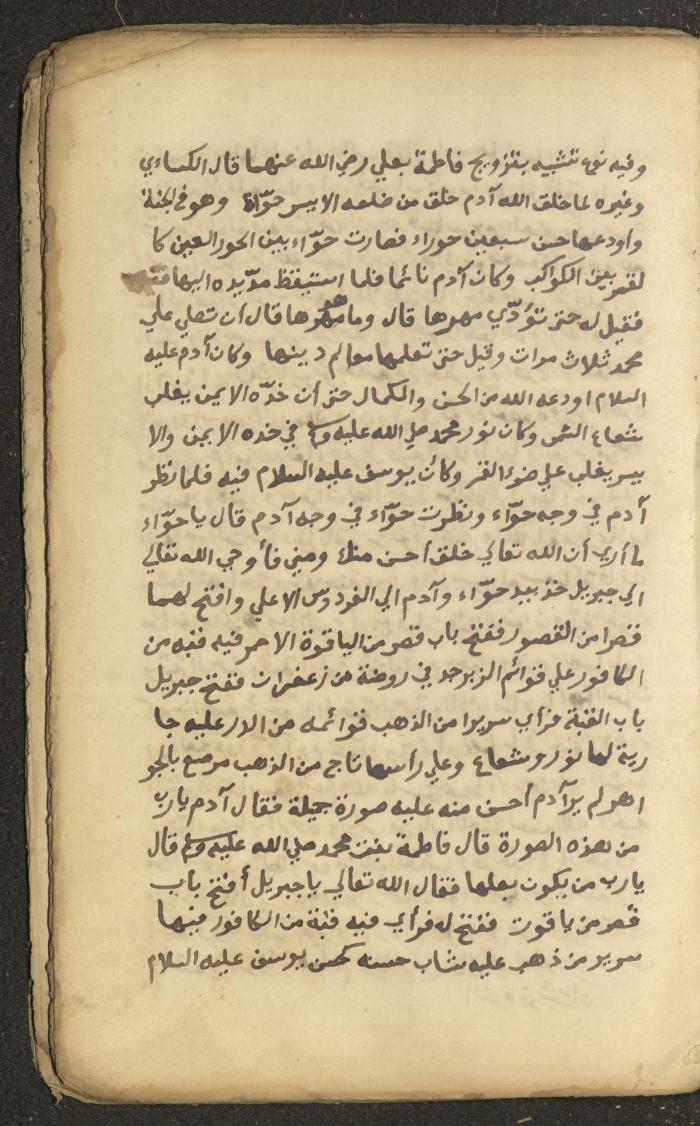 وفيه نوع تنبيه بتزويج فاطمة بعلي رضي الله عنهما قال الكساءي
وغيره لما خلق الله آدم خلق من ضلعه الايسر حوّاة وهو في الجنة
واودعها حسن سبعين حوراء فصارت حوّاء بين الحور العين كا
لقمر بين الكواكب وكان آدم نائما فلما استيقظ مدّ يده اليها
فقيل له حتى تؤدّي مهرها قال وما مهرها قال ان تصلي علي
محمد ثلاث مرات وقيل حتى تعلمها معالم دينها وكان آدم عليه
السلام اودعه الله من الحسن والكمال حتى أن خدّه الايمن يغلب
شعاع الشمس وكان نور محمد صلي الله عليه وسلم في خده الايمن والا
يسر يغلب علي ضوء القمر وكان يوسف عليه السلام فيه فلما نظر
آدم في وجه حوّاء ونظرت حوّاء في وجه آدم قال يا حوّاء
ما أري أن الله تعالي خلق أحسن منك ومني فأوحي الله تعالي
الي جبريل خذ بيد حوّاء وآدم الي الفردوس الاعلي وافتح لهما
قصرا من القصور ففتح باب قصر من الياقوة الاحمر فيه قبه من
الكافور علي قوائم الزبرجد في روضة من زعفران ففتح جبريل
باب القبة فرأي سريرا من الذهب قوائمه من الدر عليه جا
رية لها نور وشعاع وعلي رأسها تاج من الذهب مرصع بالجو
اهر لم ير آدم أحسن منه عليه صورة جميلة فقال آدم يارب
من هذه الصورة قال فاطمة بنت محمد صلي الله عليه وسلم قال
يارب من يكون بعلها فقال الله تعالي يا جبريل أفتح باب
قصر من ياقوت ففتح له فرأي فيه قبة من الكافور فيها
سرير من ذهب عليه شاب حسنه كحسن يوسف عليه السلام